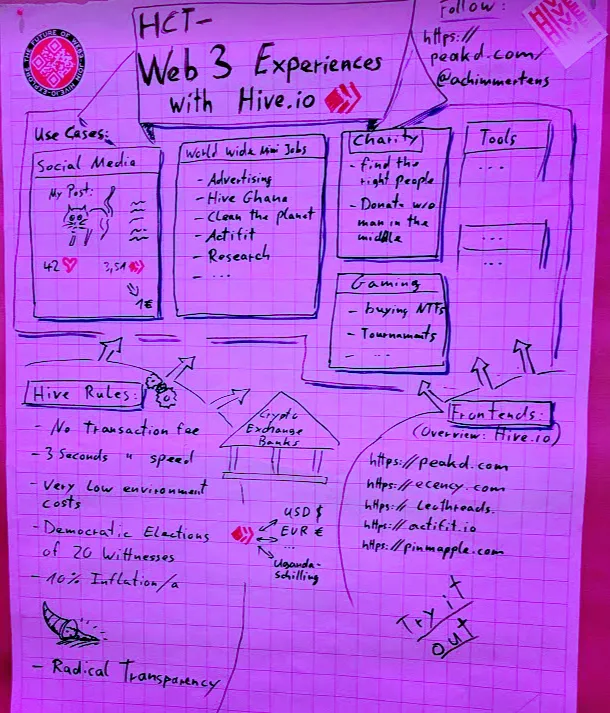 THE FUTURE OF WEB3
HCT-
Web 3 Experiences
with Hive.io
Follow:
https://
peakd.com/
@achimmertens
Use Cases:
Social Media
My Post:
42
3,51
1€
World Wide Mini Jobs
- Advertising
- Hive Ghana
- Clean the planet
- Actifit
- Research
- ...
Charity
- find the
right people
- Donate w/o
man in the
middle
Gaming
- buying NTFs
- Tournaments
- ...
Tools
...
...
...
Hive Rules:
- No Transaction fee
- 3 Seconds " speed
- Very Low environment
costs
- Democratic Elections
of 20 Wittnesses
- 10% Inflation/a
- Radical Transparency
Crypto
Exchange
Banks
USD $
EUR €
...
Uganda-
schilling
Frontends:
(Overview: Hive.io)
https://peakd.com
https://ecency.com
https://Leothreads.
https://actifit.io
https://pinmapple.com
Try it
out